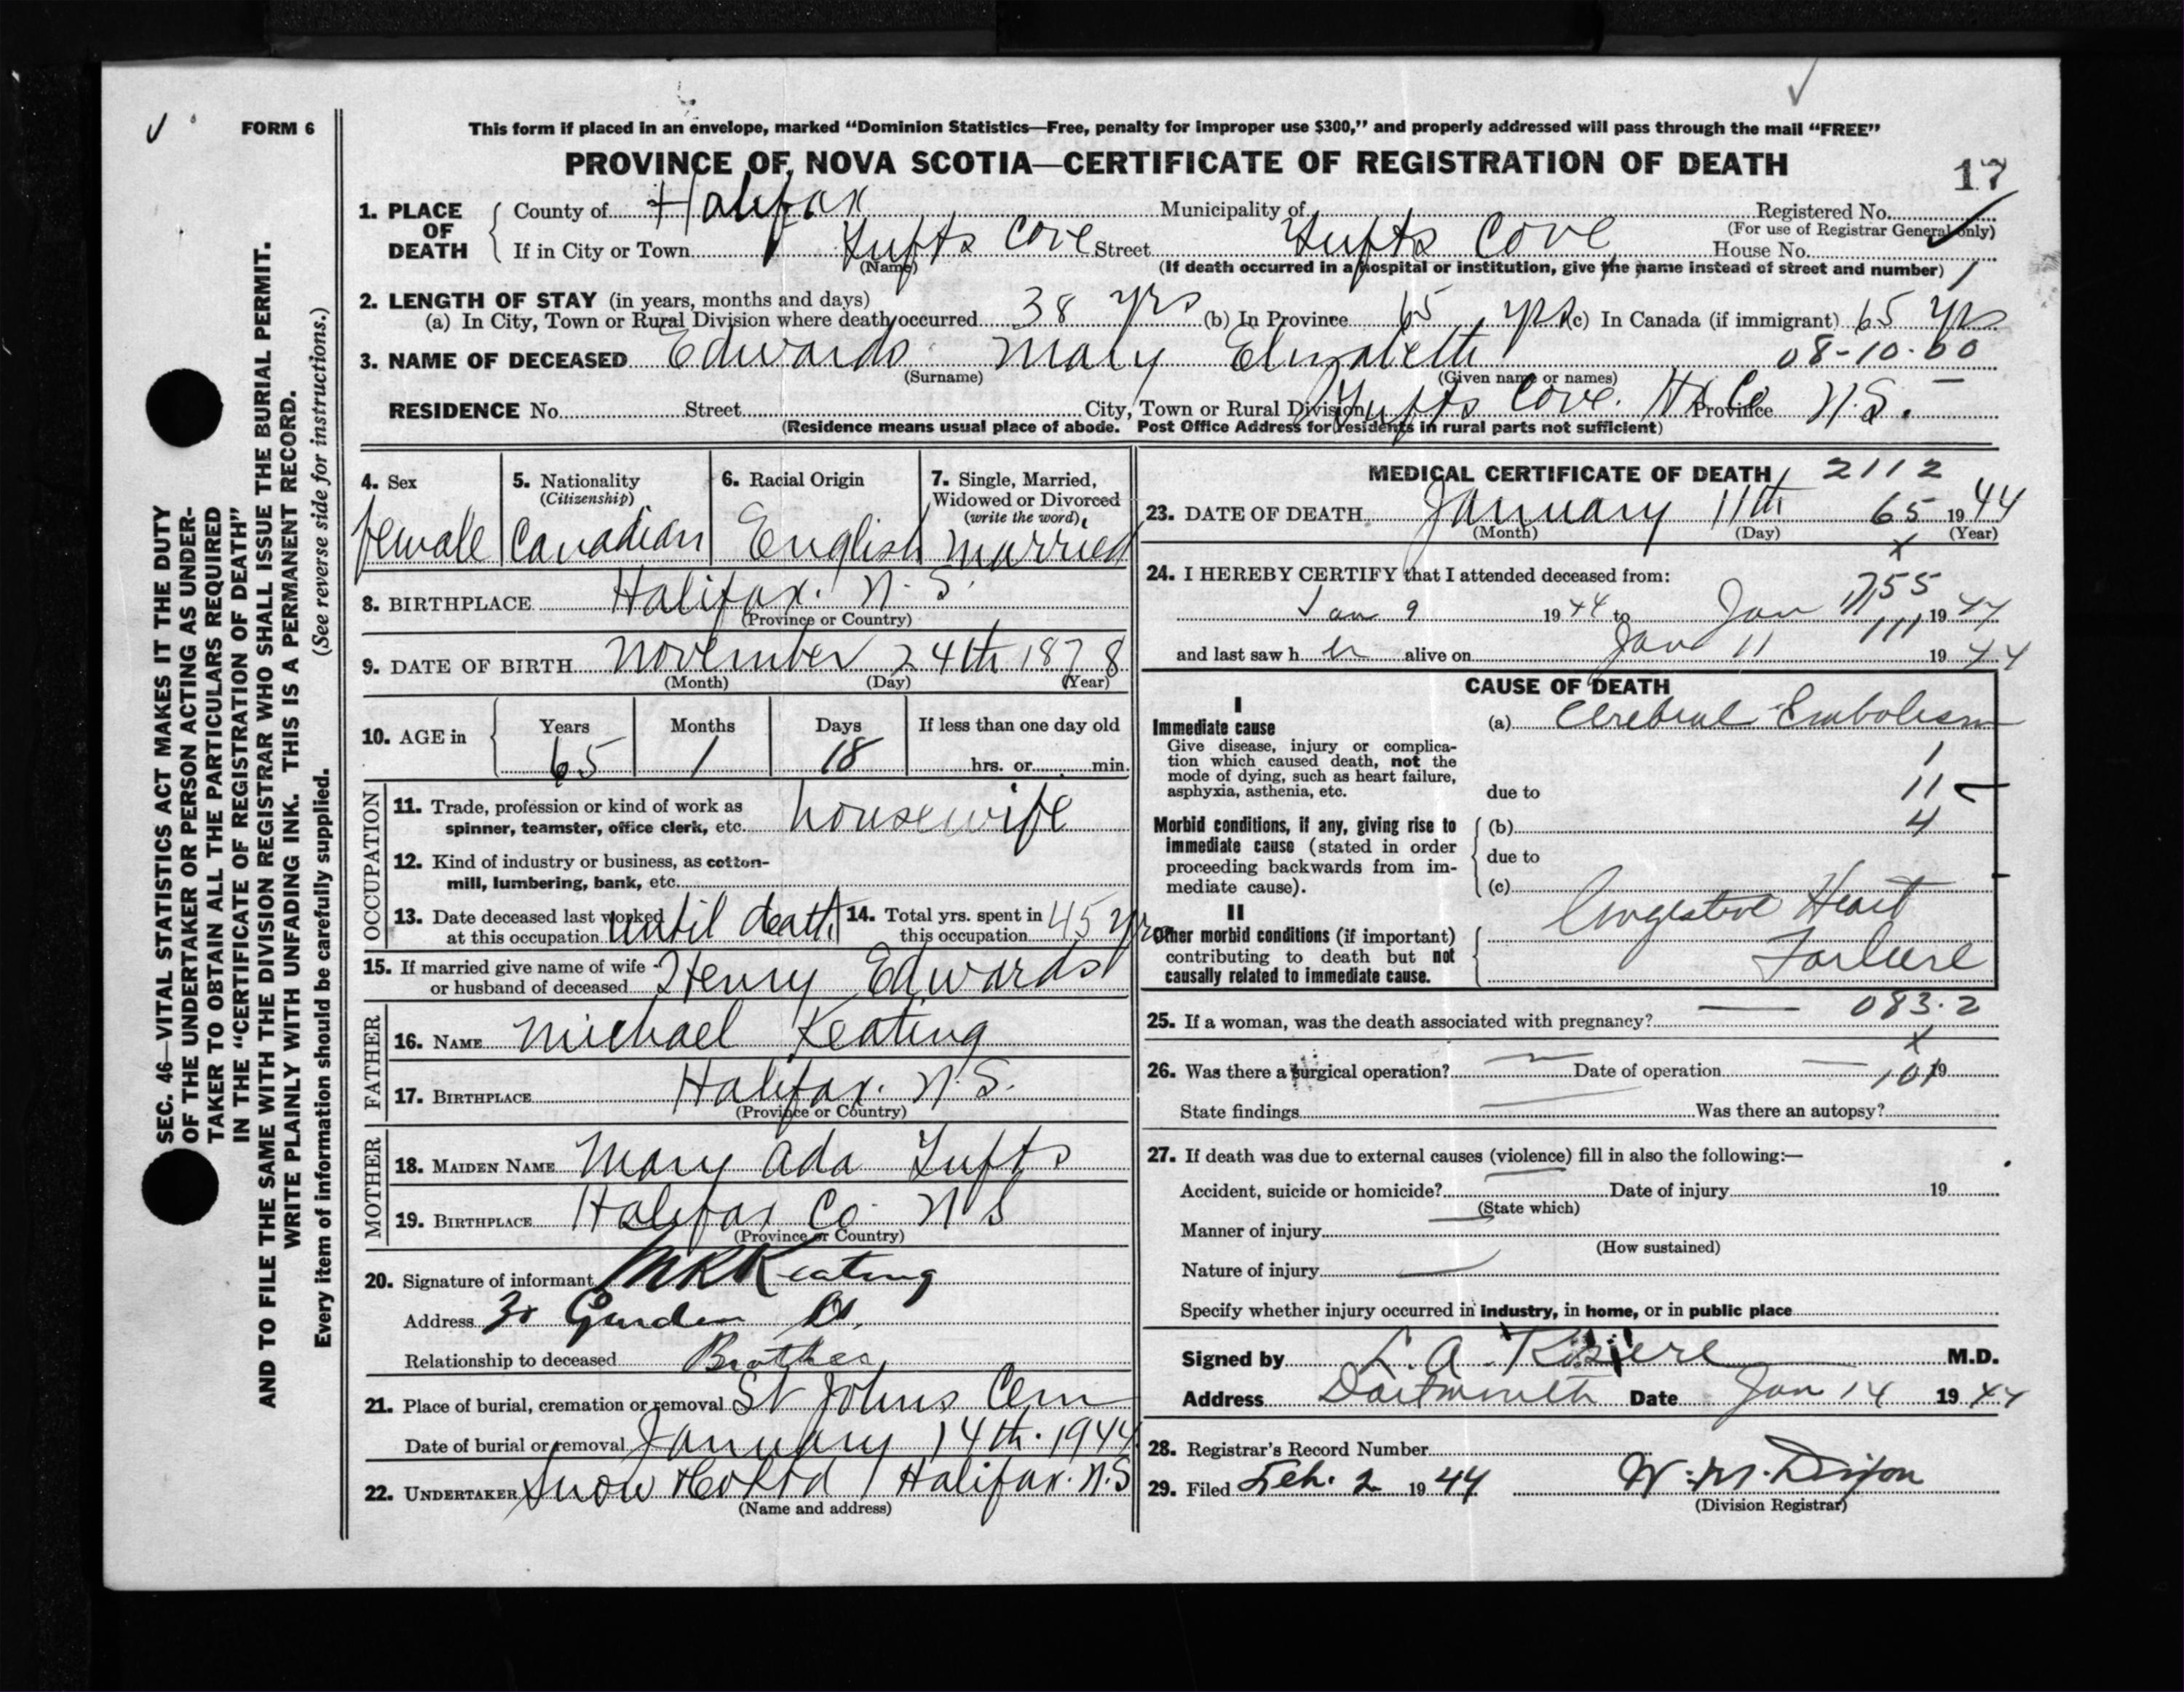 FORM 6
This form if placed in an envelope, marked “Dominion Statistics—Free, penalty for improper use $300,” and properly addressed will pass through the mail “FREE”
PROVINCE OF NOVA SCOTIA—CERTIFICATE OF REGISTRATION OF DEATH
17
1. PLACE OF DEATH
County of Halifax Municipality of Registered No.
(For use of Registrar General only)
If in City or Town Tufts Cove Street Tufts Cove House No.
(Name) (If death occurred in a hospital or institution, give the name instead of street and number)
2. LENGTH OF STAY (in years, months and days)
(a) In City, Town or Rural Division where death occurred 38 yrs (b) In Province 65 yrs (c) In Canada (if immigrant) 65 yrs
3. NAME OF DECEASED Edwards Mary Elizabeth 08-10-00
(Surname) (Given name or names)
RESIDENCE No. Street City, Town or Rural Division Tufts Cove. Hx Co Province N.S.
(Residence means usual place of abode. Post Office Address for residents in rural parts not sufficient)
4. Sex
female
5. Nationality
(Citizenship)
Canadian
6. Racial Origin
English
7. Single, Married,
Widowed or Divorced
(write the word)
married
8. BIRTHPLACE Halifax. N.S.
(Province or Country)
9. DATE OF BIRTH November 24th 1878
(Month) (Day) (Year)
10. AGE in
Years Months Days If less than one day old
65 1 18 hrs. or min.
OCCUPATION
11. Trade, profession or kind of work as
spinner, teamster, office clerk, etc. housewife
12. Kind of industry or business, as cotton-
mill, lumbering, bank, etc.
13. Date deceased last worked
at this occupation until death
14. Total yrs. spent in
this occupation 45 yrs
15. If married give name of wife
or husband of deceased Henry Edwards
FATHER
16. NAME Michael Keating
17. BIRTHPLACE Halifax. N.S.
(Province or Country)
MOTHER
18. MAIDEN NAME Mary Ada Tufts
19. BIRTHPLACE Halifax Co. N S
(Province or Country)
20. Signature of informant M R Keating
Address Garden
Relationship to deceased Brother
21. Place of burial, cremation or removal St Johns Cem
Date of burial or removal January 14th. 1944
22. UNDERTAKER Snow & Co Ltd Halifax. N.S
(Name and address)
MEDICAL CERTIFICATE OF DEATH 2112
23. DATE OF DEATH January 11th 65 1944
(Month) (Day) (Year)
x
24. I HEREBY CERTIFY that I attended deceased from:
Jan 9 1944 to Jan 11 1944
755
111
and last saw h er alive on Jan 11 1944
CAUSE OF DEATH
I
Immediate cause
Give disease, injury or complica-
tion which caused death, not the
mode of dying, such as heart failure,
asphyxia, asthenia, etc.
(a) Cerebral Embolism
1
due to 11
Morbid conditions, if any, giving rise to
immediate cause (stated in order
proceeding backwards from im-
mediate cause).
(b) 4
due to
(c)
II
Other morbid conditions (if important)
contributing to death but not
causally related to immediate cause.
Congestive Heart
Failure
25. If a woman, was the death associated with pregnancy? — 083.2
x
26. Was there a surgical operation? — Date of operation — 101 19
State findings — Was there an autopsy?
27. If death was due to external causes (violence) fill in also the following:—
Accident, suicide or homicide? Date of injury 19
(State which)
Manner of injury
(How sustained)
Nature of injury
Specify whether injury occurred in industry, in home, or in public place
Signed by L. A. M.D.
Address Dartmouth Date Jan 14 1944
28. Registrar's Record Number
29. Filed Feb. 2 1944 W. M. Dixon
(Division Registrar)
SEC. 46—VITAL STATISTICS ACT MAKES IT THE DUTY
OF THE UNDERTAKER OR PERSON ACTING AS UNDER-
TAKER TO OBTAIN ALL THE PARTICULARS REQUIRED
IN THE “CERTIFICATE OF REGISTRATION OF DEATH”
AND TO FILE THE SAME WITH THE DIVISION REGISTRAR WHO SHALL ISSUE THE BURIAL PERMIT.
WRITE PLAINLY WITH UNFADING INK. THIS IS A PERMANENT RECORD.
Every item of information should be carefully supplied. (See reverse side for instructions.)